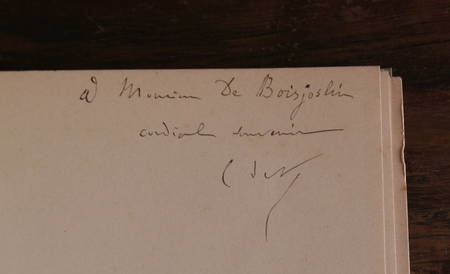 à Monsieur De Boisjoslin
cordial souvenir